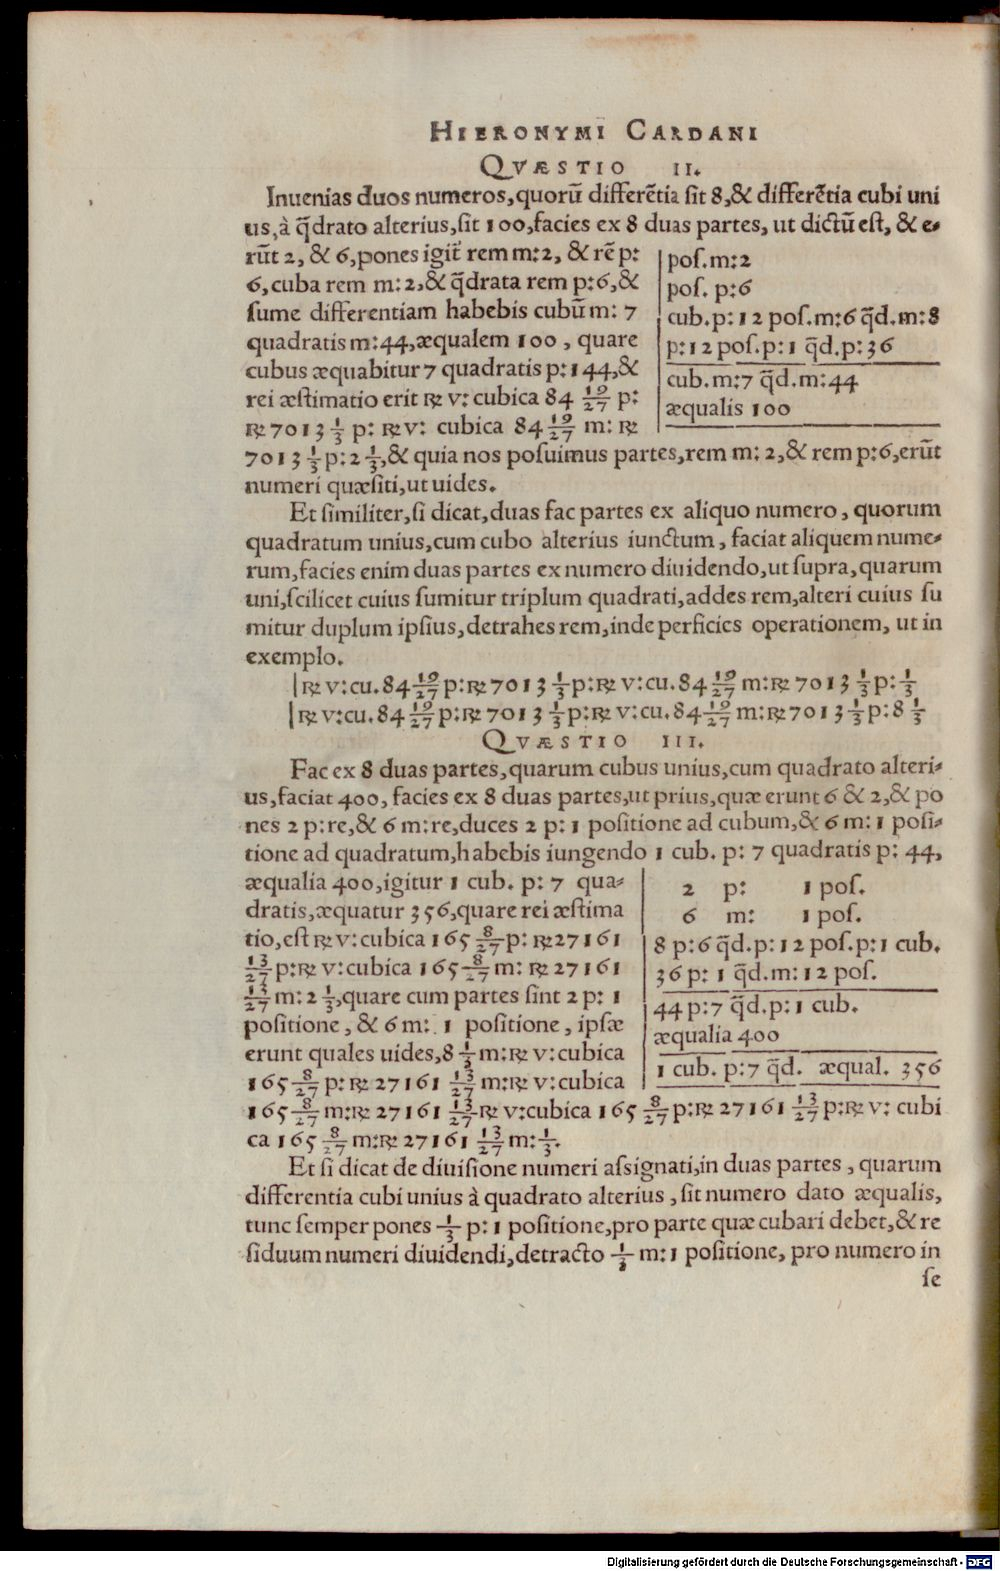 HIERONYMI CARDANI
QVÆSTIO II.
Inuenias duos numeros, quorũ differẽtia sit 8, & differẽtia cubi uni
us, à q̃drato alterius, sit 100, facies ex 8 duas partes, ut dictũ est, & e⸗
rũt 2, & 6, pones igit̃ rem m: 2, & rẽ p:
6, cuba rem m: 2, & q̃drata rem p: 6, &
sume differentiam habebis cubũ m: 7
quadratis m: 44, æqualem 100, quare
cubus æquabitur 7 quadratis p: 144, &
rei æstimatio erit ℞ v: cubica 84 19/27 p:
℞ 7013 1/3 p: ℞ v: cubica 84 19/27 m: ℞
pos. m: 2
pos. p: 6
cub. p: 12 pos. m: 6 q̃d. m: 8
p: 12 pos. p: 1 q̃d. p: 36
cub. m: 7 q̃d. m: 44
æqualis 100
7013 1/3 p: 2 1/3, & quia nos posuimus partes, rem m: 2, & rem p: 6, erũt
numeri quæsiti, ut uides.
Et similiter, si dicat, duas fac partes ex aliquo numero, quorum
quadratum unius, cum cubo alterius iunctum, faciat aliquem nume⸗
rum, facies enim duas partes ex numero diuidendo, ut supra, quarum
uni, scilicet cuius sumitur triplum quadrati, addes rem, alteri cuius su
mitur duplum ipsius, detrahes rem, inde perficies operationem, ut in
exemplo.
℞ v: cu. 84 19/27 p: ℞ 7013 1/3 p: ℞ v: cu. 84 19/27 m: ℞ 7013 1/3 p: 1/3
℞ v: cu. 84 19/27 p: ℞ 7013 1/3 p: ℞ v: cu. 84 19/27 m: ℞ 7013 1/3 p: 8 1/3
QVÆSTIO III.
Fac ex 8 duas partes, quarum cubus unius, cum quadrato alteri⸗
us, faciat 400, facies ex 8 duas partes, ut prius, quæ erunt 6 & 2, & po
nes 2 p: re, & 6 m: re, duces 2 p: 1 positione ad cubum, & 6 m: 1 posi⸗
tione ad quadratum, habebis iungendo 1 cub. p: 7 quadratis p: 44,
æqualia 400, igitur 1 cub. p: 7 qua⸗
dratis, æquatur 356, quare rei æstima
tio, est ℞ v: cubica 165 8/27 p: ℞ 27161
13/27 p: ℞ v: cubica 165 8/27 m: ℞ 27161
13/27 m: 2 1/3, quare cum partes sint 2 p: 1
positione, & 6 m: 1 positione, ipsæ
erunt quales uides, 8 1/3 m: ℞ v: cubica
165 8/27 p: ℞ 27161 13/27 m: ℞ v: cubica
2 p: 1 pos.
6 m: 1 pos.
8 p: 6 q̃d. p: 12 pos. p: 1 cub.
36 p: 1 q̃d. m: 12 pos.
44 p: 7 q̃d. p: 1 cub.
æqualia 400
1 cub. p: 7 q̃d. æqual. 356
165 8/27 m: ℞ 27161 13/27 ℞ v: cubica 165 8/27 p: ℞ 27161 13/27 p: ℞ v: cubi
ca 165 8/27 m: ℞ 27161 13/27 m: 1/3.
Et si dicat de diuisione numeri assignati, in duas partes, quarum
differentia cubi unius à quadrato alterius, sit numero dato æqualis,
tunc semper pones 1/3 p: 1 positione, pro parte quæ cubari debet, & re
siduum numeri diuidendi, detracto 1/3 m: 1 positione, pro numero in
se
Digitalisierung gefördert durch die Deutsche Forschungsgemeinschaft - DFG